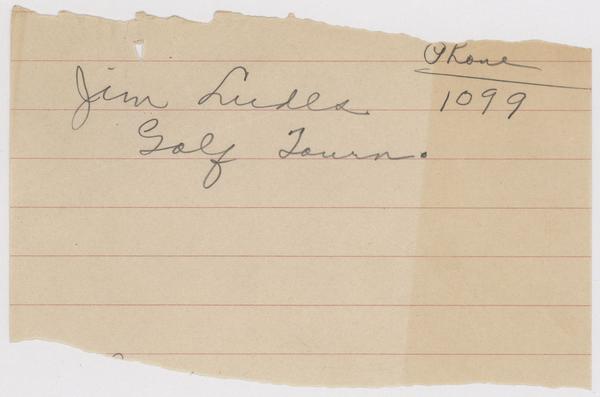 Phone
Jim Ludes 1099
Golf Tourn.